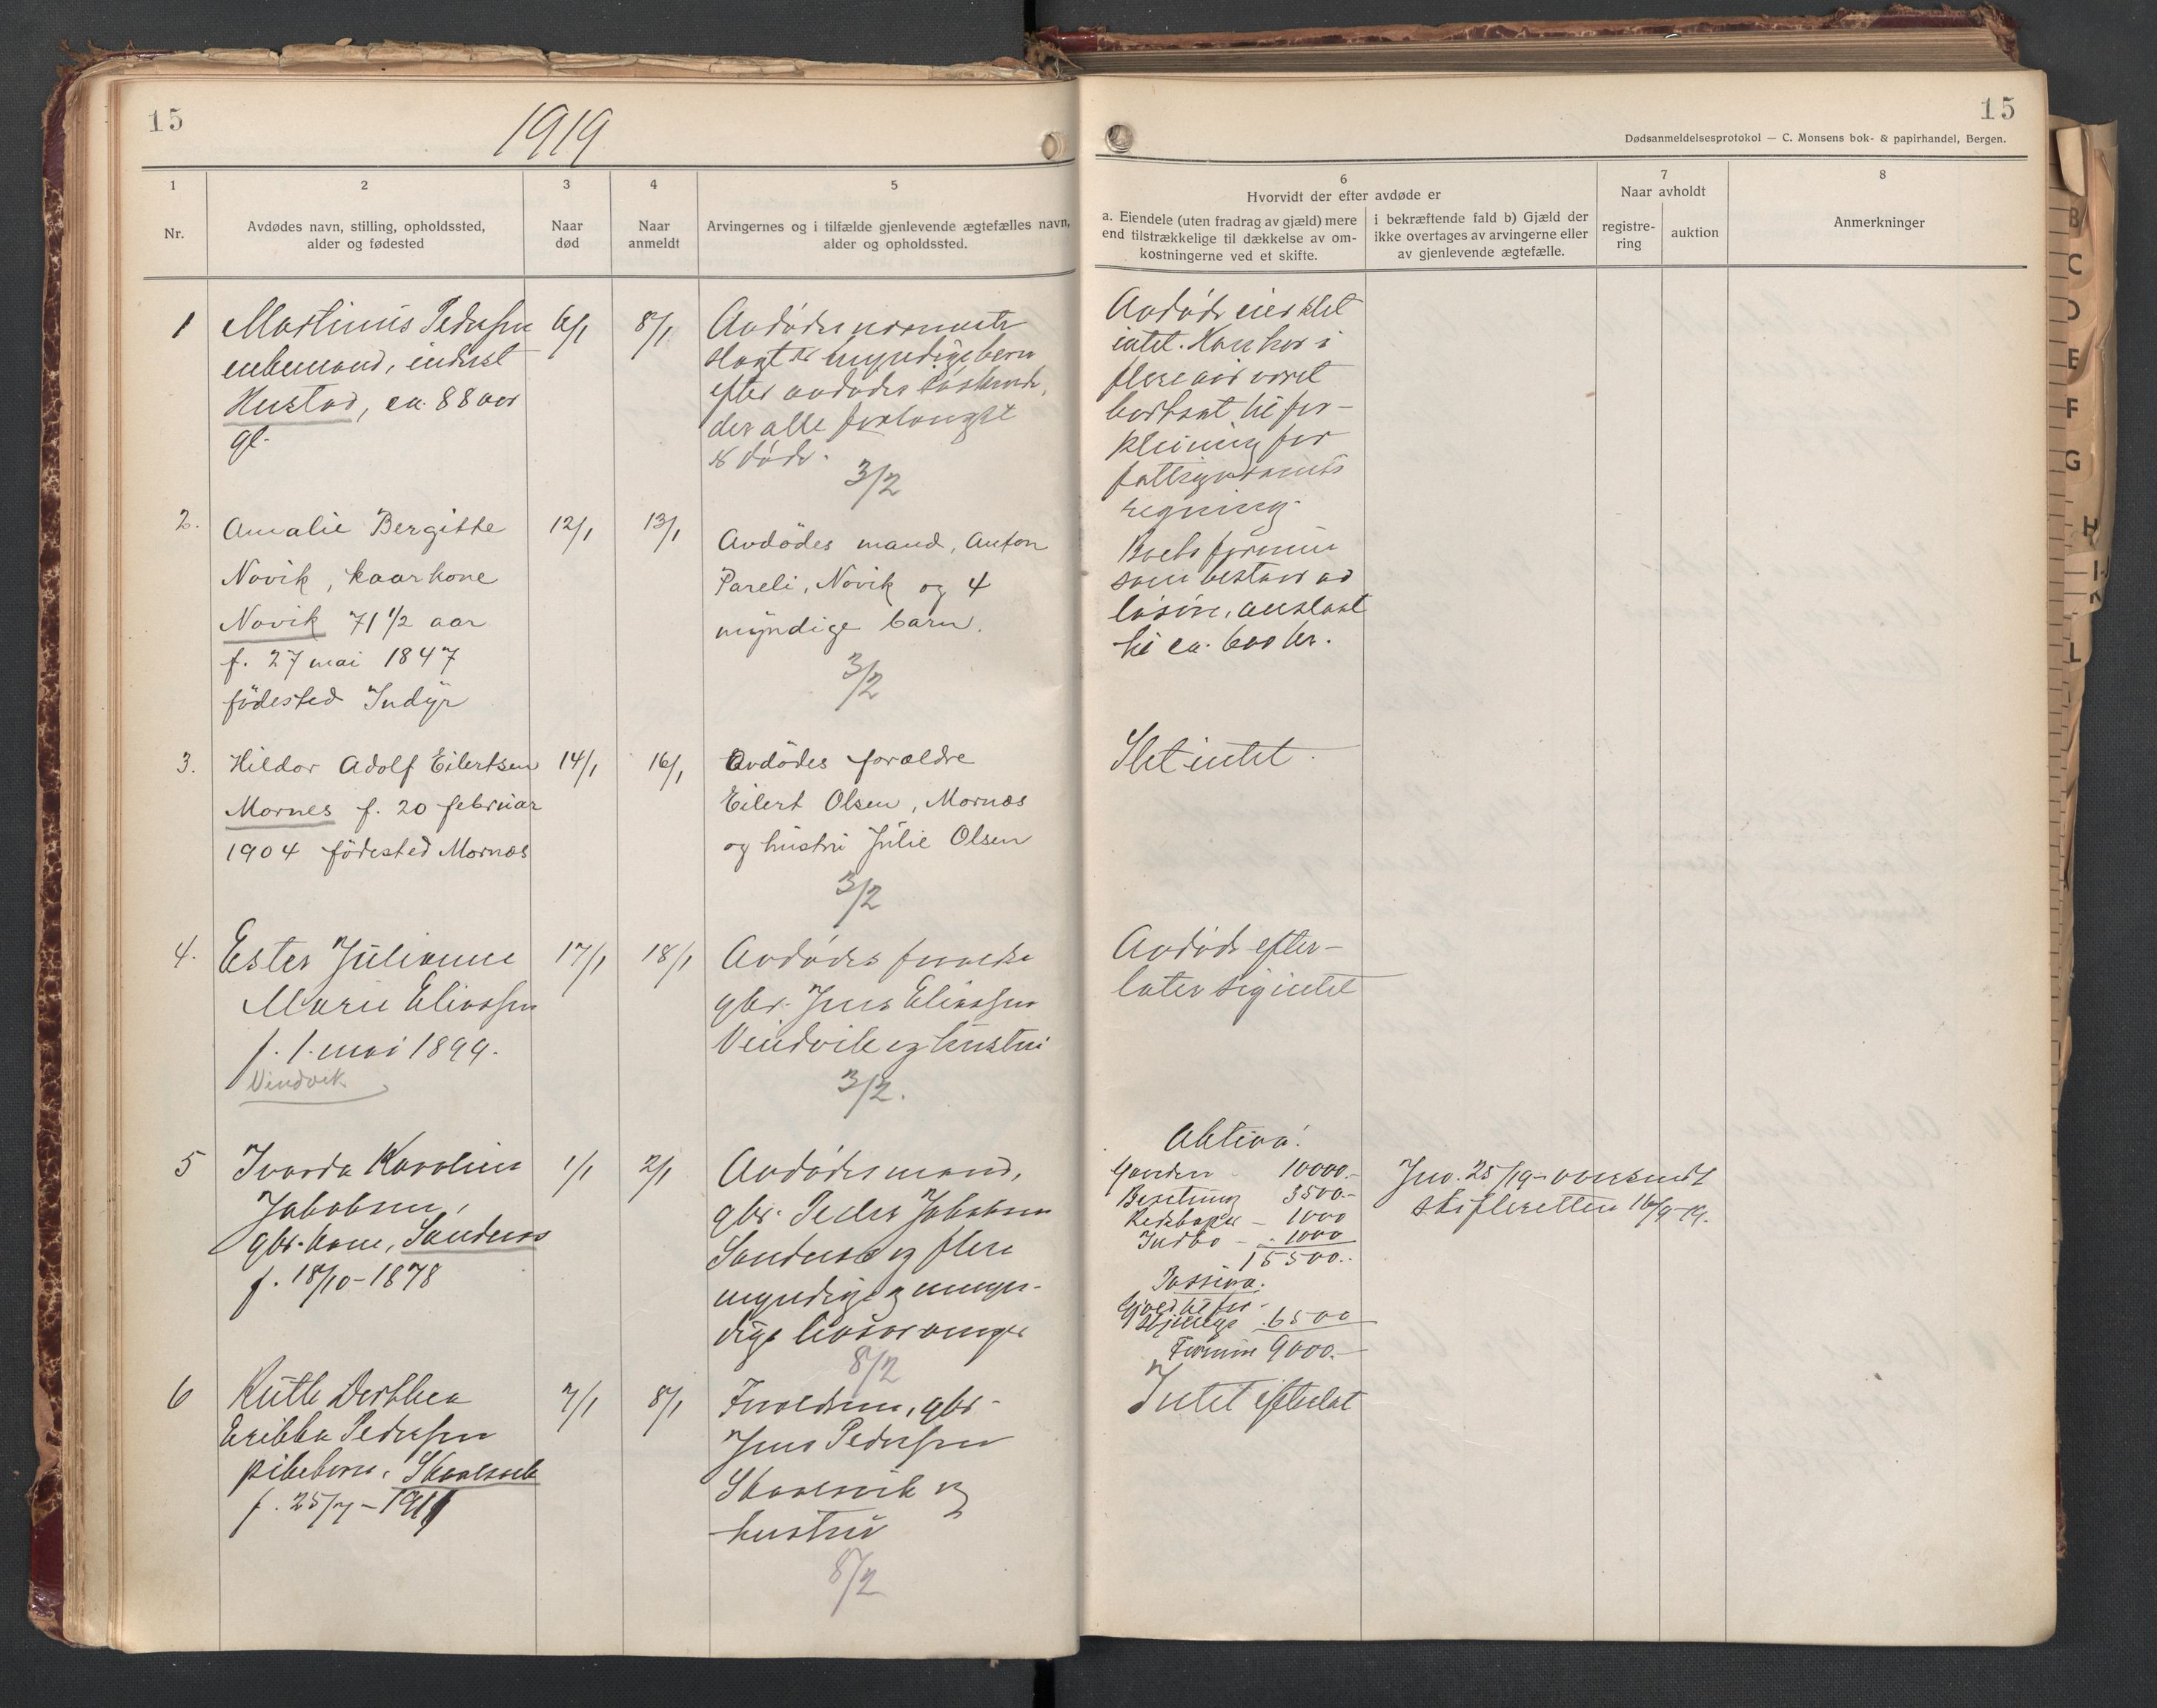 15
1919
1
2
3
4
5
Nr.
Avdødes navn, stilling, opholdssted,
alder og fødested
Naar
død
Naar
anmeldt
Arvingernes og i tilfælde gjenlevende ægtefælles navn,
alder og opholdssted.
1
Martinus Pedersen
enkemand, inderst
Hustad, ca. 88 aar
gl.
6/1
8/1
Avdødes nærmeste
slegt er myndige børn
efter avdødes søskende,
der alle forlængst
er døde.
3/2
2.
Amalie Bergitte
Novik, kaarkone
Novik 71 1/2 aar
f. 27 mai 1847
födested Indyr
12/1
13/1
Avdödes mand, Anton
Pareli, Novik og 4
myndige barn.
3/2
3.
Hildor Adolf Eilertsen
Mornes f. 20 februar
1904 födested Mornæs
14/1
16/1
Avdödes forældre
Eilert Olsen, Mornæs
og hustru Julie Olsen
3/2
4.
Ester Julianne
Marie Eliassen
f. 1. mai 1899.
Vindvik
17/1
18/1
Avdødes forældre
gbr. Jens Eliassen
Vindvik og hustru
3/2.
5
Ivarda Karoline
Jakobsen,
gbr. kone, Sandnes
f. 18/10-1878
1/1
2/1
Avdødes mand,
gbr. Peder Jakobsen
Sandnes og flere
myndige og umyn-
dige livsarvinger
8/2
6
Ruth Dorthea
Erikka Pedersen
pikebarn, Skaalsvik
f. 25/7-1911
7/1
8/1
Forældrene, gbr.
Jens Pedersen
Skaalsvik og
hustru
8/2
15
Dødsanmeldelsesprotokol — C. Monsens bok- & papirhandel, Bergen.
6
Hvorvidt der efter avdøde er
a. Eiendele (uten fradrag av gjæld) mere
end tilstrækkelige til dækkelse av om-
kostningerne ved et skifte.
i bekræftende fald b) Gjæld der
ikke overtages av arvingerne eller
av gjenlevende ægtefælle.
7
Naar avholdt
registre-
ring
auktion
8
Anmerkninger
Avdøde eier slet
intet. Han har i
flere aar været
bortsat til for-
pleining for
fattigvæsenets
regning.
Boets formue
som bestaar av
løsøre, anslaat
til ca. 600 kr.
Slet intet.
Avdøde efter-
later sig intet
Aktiva:
Gaarden 10000.-
Besetning 3500.-
Redskaper - 1000
Indbo - 1000
15500.-
Passiva.
Gjæld til for-
skjellige 6500
Formue 9000.-
Jnr. 25/19 - oversendt
skifteretten 16/9-19.
Intet efterlat
B
C
D
E
F
G
H
I
K
L